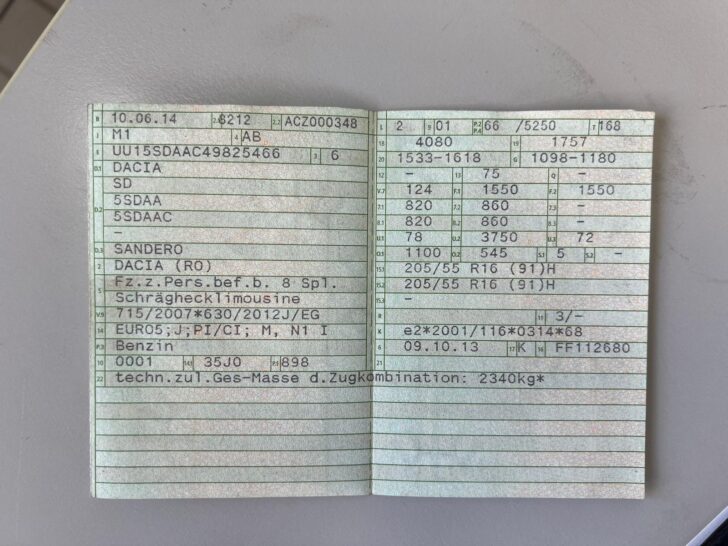 B 10.06.14 2.1 8212 2.2 ACZ000348
J M1 4 AB
E UU15SDAAC49825466 3 6
D.1 DACIA
SD
D.2 5SDAA
5SDAAC
–
D.3 SANDERO
2 DACIA (RO)
5 Fz.z.Pers.bef.b. 8 Spl.
Schräghecklimousine
V.9 715/2007*630/2012J/EG
14 EURO5;J;PI/CI; M, N1 I
P.3 Benzin
10 0001 14.1 35J0 P.1 898
22 techn.zul.Ges-Masse d.Zugkombination: 2340kg*
L 2 9 01 P.2 P.4 66 /5250 T 168
18 4080 19 1757
20 1533-1618 G 1098-1180
12 – 13 75 Q –
V.7 124 F.1 1550 F.2 1550
7.1 820 7.2 860 7.3 –
8.1 820 8.2 860 8.3 –
U.1 78 U.2 3750 U.3 72
O.1 1100 O.2 545 S.1 5 S.2 –
15.1 205/55 R16 (91)H
15.2 205/55 R16 (91)H
15.3 –
R 11 3/–
K e2*2001/116*0314*68
6 09.10.13 17 K 16 FF112680
21